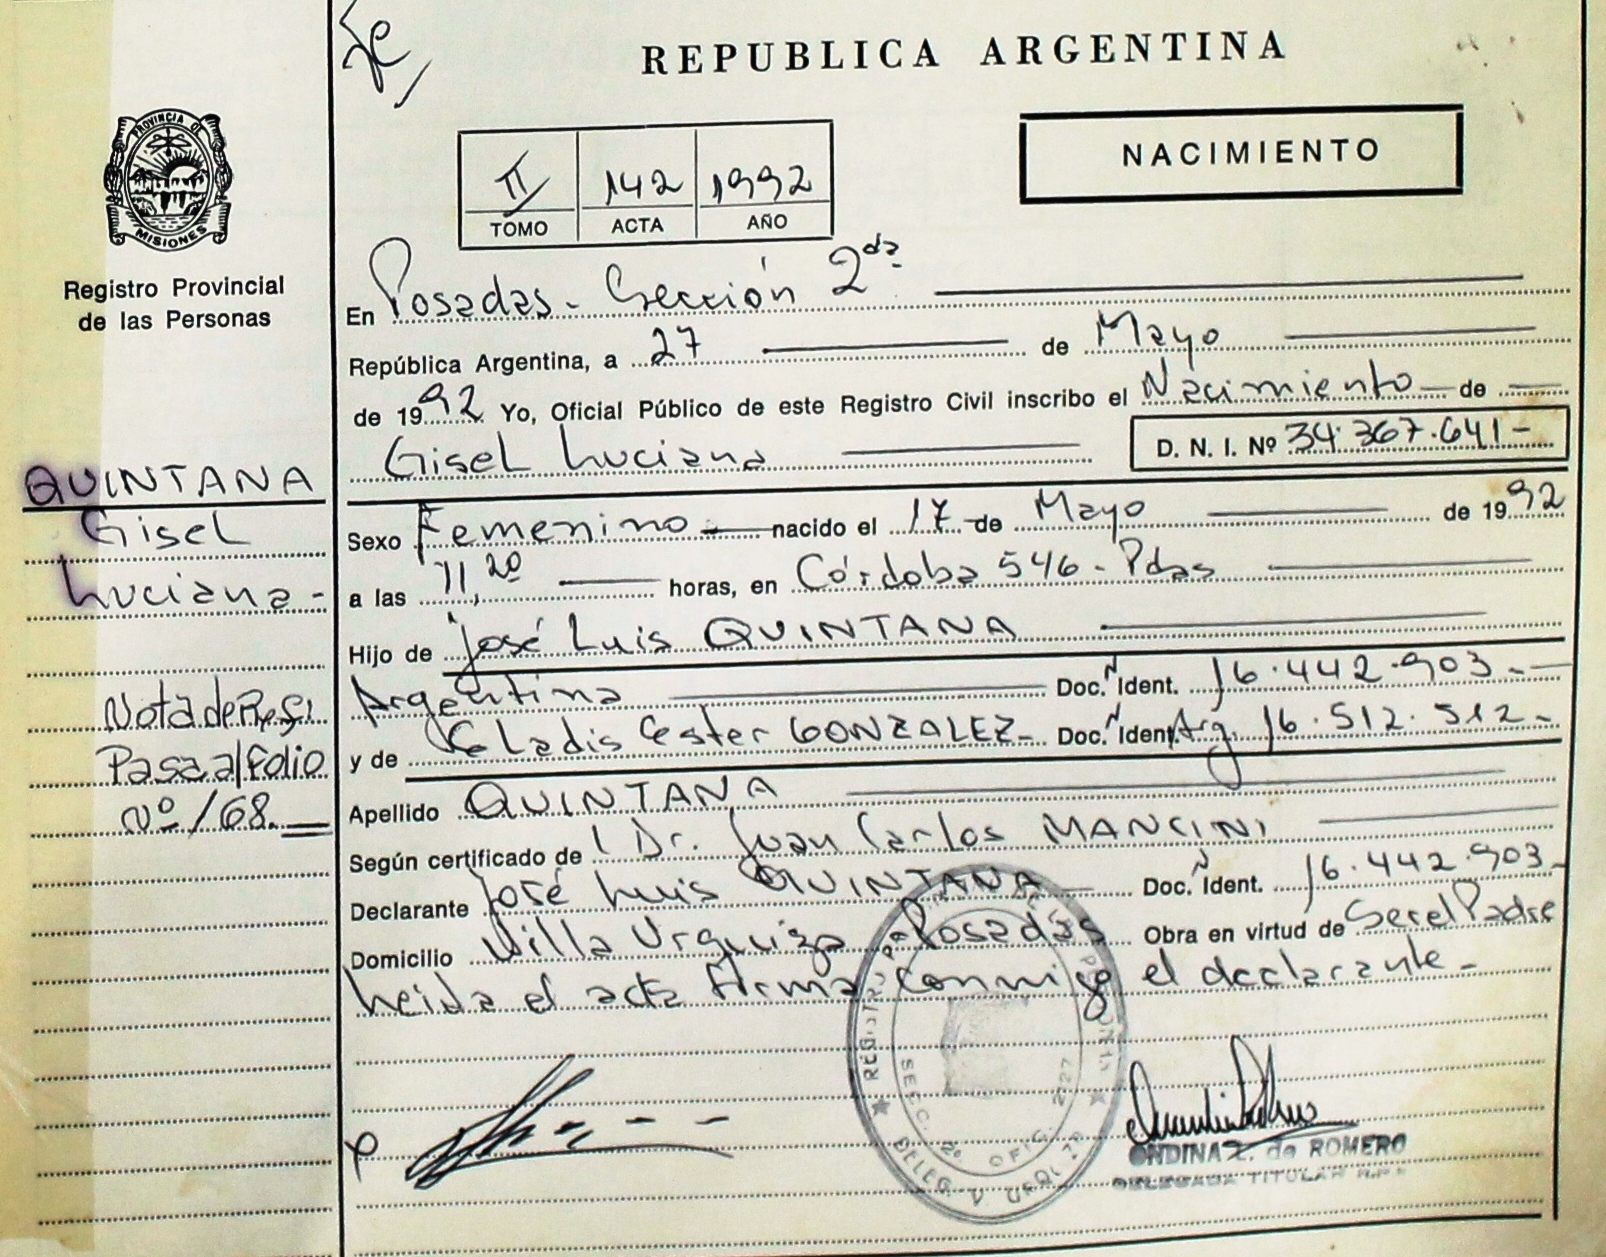 REPUBLICA ARGENTINA
PROVINCIA DE
MISIONES
Registro Provincial
de las Personas
NACIMIENTO
II 142 1992
TOMO ACTA AÑO
En Posadas - Sección 2da
República Argentina, a 27 de Mayo
de 1992 Yo, Oficial Público de este Registro Civil inscribo el Nacimiento de
Gisel Luciana D. N. I. Nº 34.367.641-
QUINTANA
Gisel
Luciana -
Sexo Femenino nacido el 17 de Mayo de 1992
a las 11,20 horas, en Córdoba 546 - Pdas
Hijo de José Luis QUINTANA
Argentina Doc. N Ident. 16.442.903 -
y de Gladis Ester GONZALEZ - Doc. N Ident. Arg. 16.512.512 -
Apellido QUINTANA
Según certificado de Dr. Juan Carlos MANCINI
Declarante José Luis QUINTANA Doc. N Ident. 16.442.903 -
Domicilio Villa Urquiza Posadas Obra en virtud de Ser el Padre
Leida el acta firma conmigo el declarante -
Nota de
Pasa al Folio
Nº 168.
SECC. 2º OFIC. 2727
ONDINA Z. de ROMERO
DELEGADA TITULAR